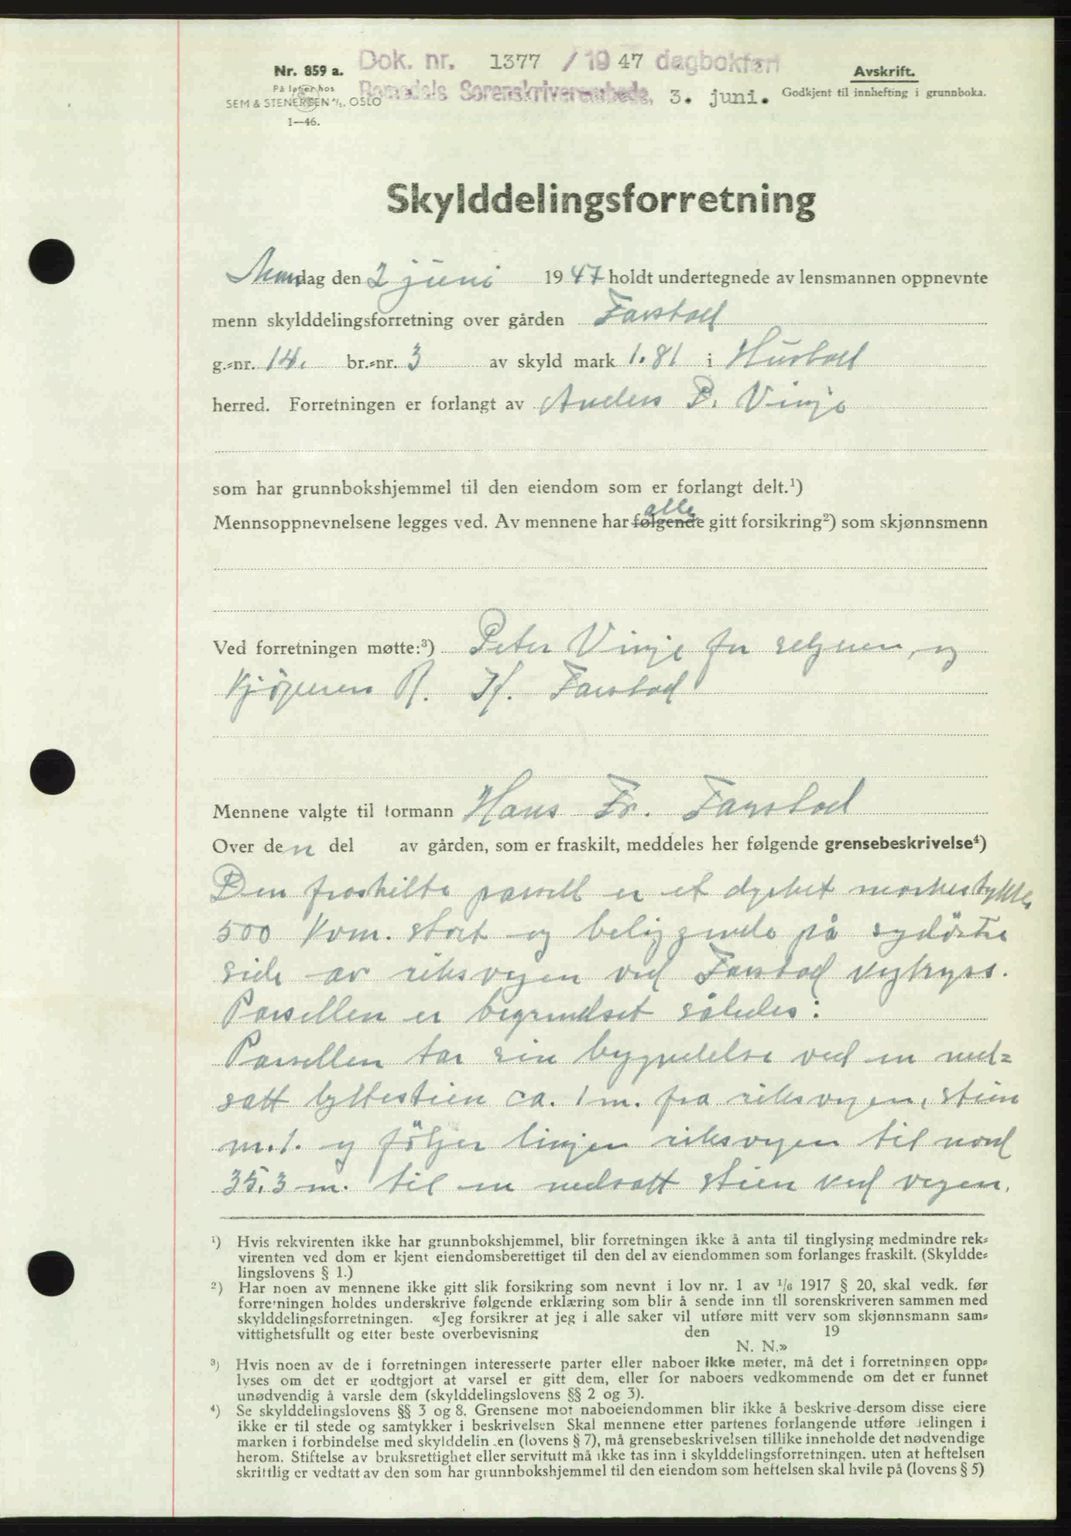 Dok. nr. 1377 / 1947 dagbokført
Nr. 859 a.
Avskrift.
På lager hos
Romsdals Sorenskriverembede, 3. juni.
Godkjent til innhefting i grunnboka.
SEM & STENERSEN A/S, OSLO
1—46.
Skylddelingsforretning
Mandag den 2 juni 1947 holdt undertegnede av lensmannen oppnevnte
menn skylddelingsforretning over gården Farstad
g.-nr. 14. br.-nr. 3 av skyld mark 1.81 i Hustad
herred. Forretningen er forlangt av Anders P. Vinje
som har grunnbokshjemmel til den eiendom som er forlangt delt.¹)
alle
Mennsoppnevnelsene legges ved. Av mennene har følgende gitt forsikring²) som skjønnsmenn
Ved forretningen møtte:³) Peter Vinje for selgeren, og
kjøperen R. K. Farstad
Mennene valgte til formann Hans Fr. Farstad
Over den del av gården, som er fraskilt, meddeles her følgende grensebeskrivelse⁴)
Den fraskilte parsell er et dyrket markestykke
500 kvm. stort og beliggende på sydøstre
side av riksvegen ved Farstad vegkryss.
Parsellen er begrendset således:
Parsellen tar sin byyndelse ved en ned=
satt lyktestien ca. 1 m. fra riksvegen, stien
m. 1. og følger linjen riksvegen til nord
35,3 m. til en nedsatt stien ved vegen.
¹) Hvis rekvirenten ikke har grunnbokshjemmel, blir forretningen ikke å anta til tinglysing medmindre rek-
virenten ved dom er kjent eiendomsberettiget til den del av eiendommen som forlanges fraskilt. (Skyldde-
lingslovens § 1.)
²) Har noen av mennene ikke gitt slik forsikring som nevnt i lov nr. 1 av 1/6 1917 § 20, skal vedk. før
forretningen holdes underskrive følgende erklæring som blir å sende inn til sorenskriveren sammen med
skylddelingsforretningen. «Jeg forsikrer at jeg i alle saker vil utføre mitt verv som skjønnsmann sam-
vittighetsfullt og etter beste overbevisning den 19
N. N.»
³) Hvis noen av de i forretningen interesserte parter eller naboer ikke møter, må det i forretningen opp-
lyses om det er godtgjort at varsel er gitt dem, eller for naboers vedkommende om det er funnet
unødvendig å varsle dem (skylddelingslovens §§ 2 og 3).
⁴) Se skylddelingslovens §§ 3 og 8. Grensene mot naboeiendommen blir ikke å beskrive dersom disse eiere
ikke er til stede og samtykker i beskrivelsen Skal mennene etter partenes forlangende utføre delingen i
marken i forbindelse med skylddelingen (lovens § 7), må grensebeskrivelsen tillike inneholde det nødvendige
herom. Stiftelse av bruksrettighet eller servitutt må ikke tas inn i skylddelingsforretningen. uten at heftelsen
skriftlig er vedtatt av den som har grunnbokshjemmel til den eiendom som heftelsen skal hvile på (lovens § 5)